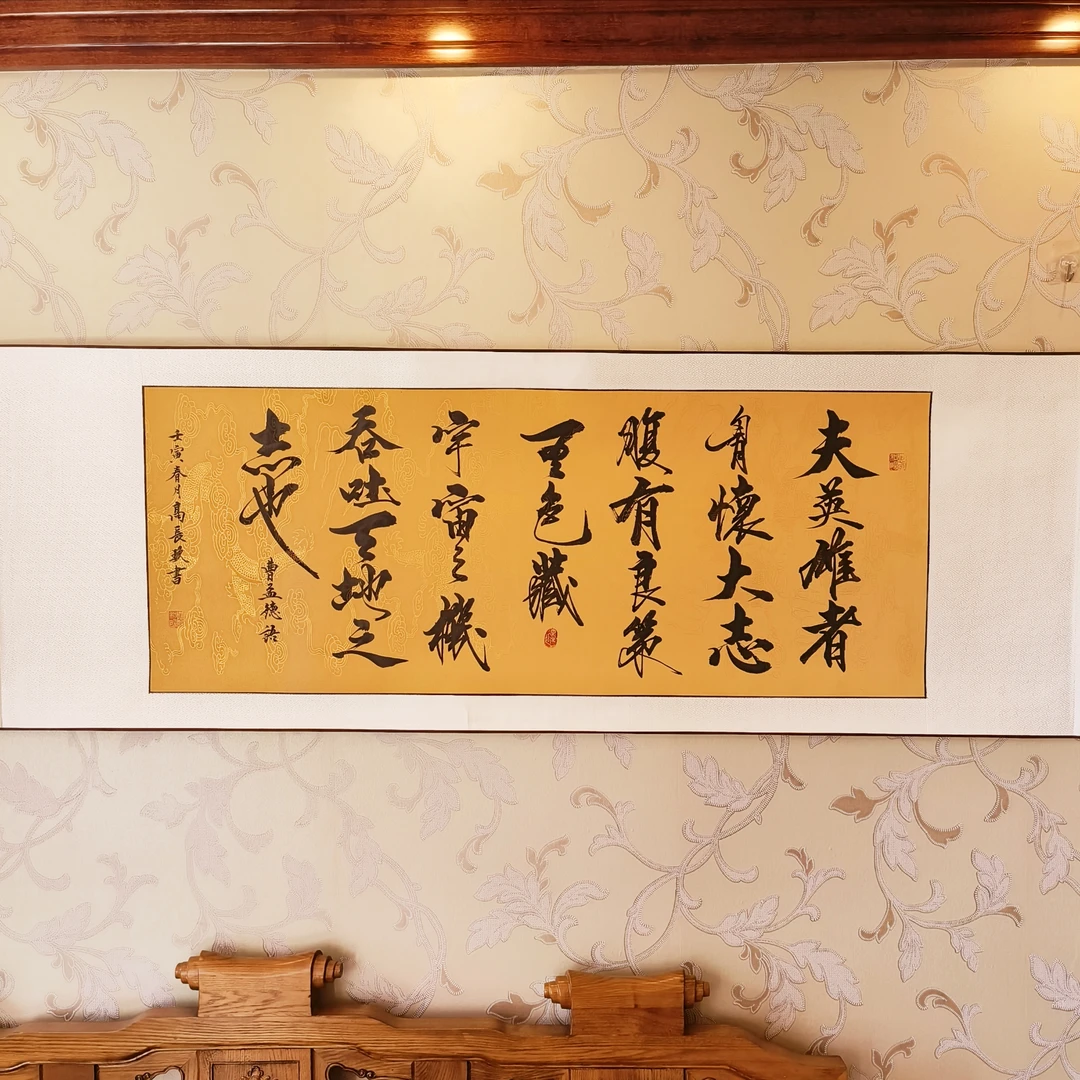 夫英雄者
胷懷大志
腹有良策
包藏
宇宙之機
吞吐天地之
志也
曹孟德語
壬寅春月高長書